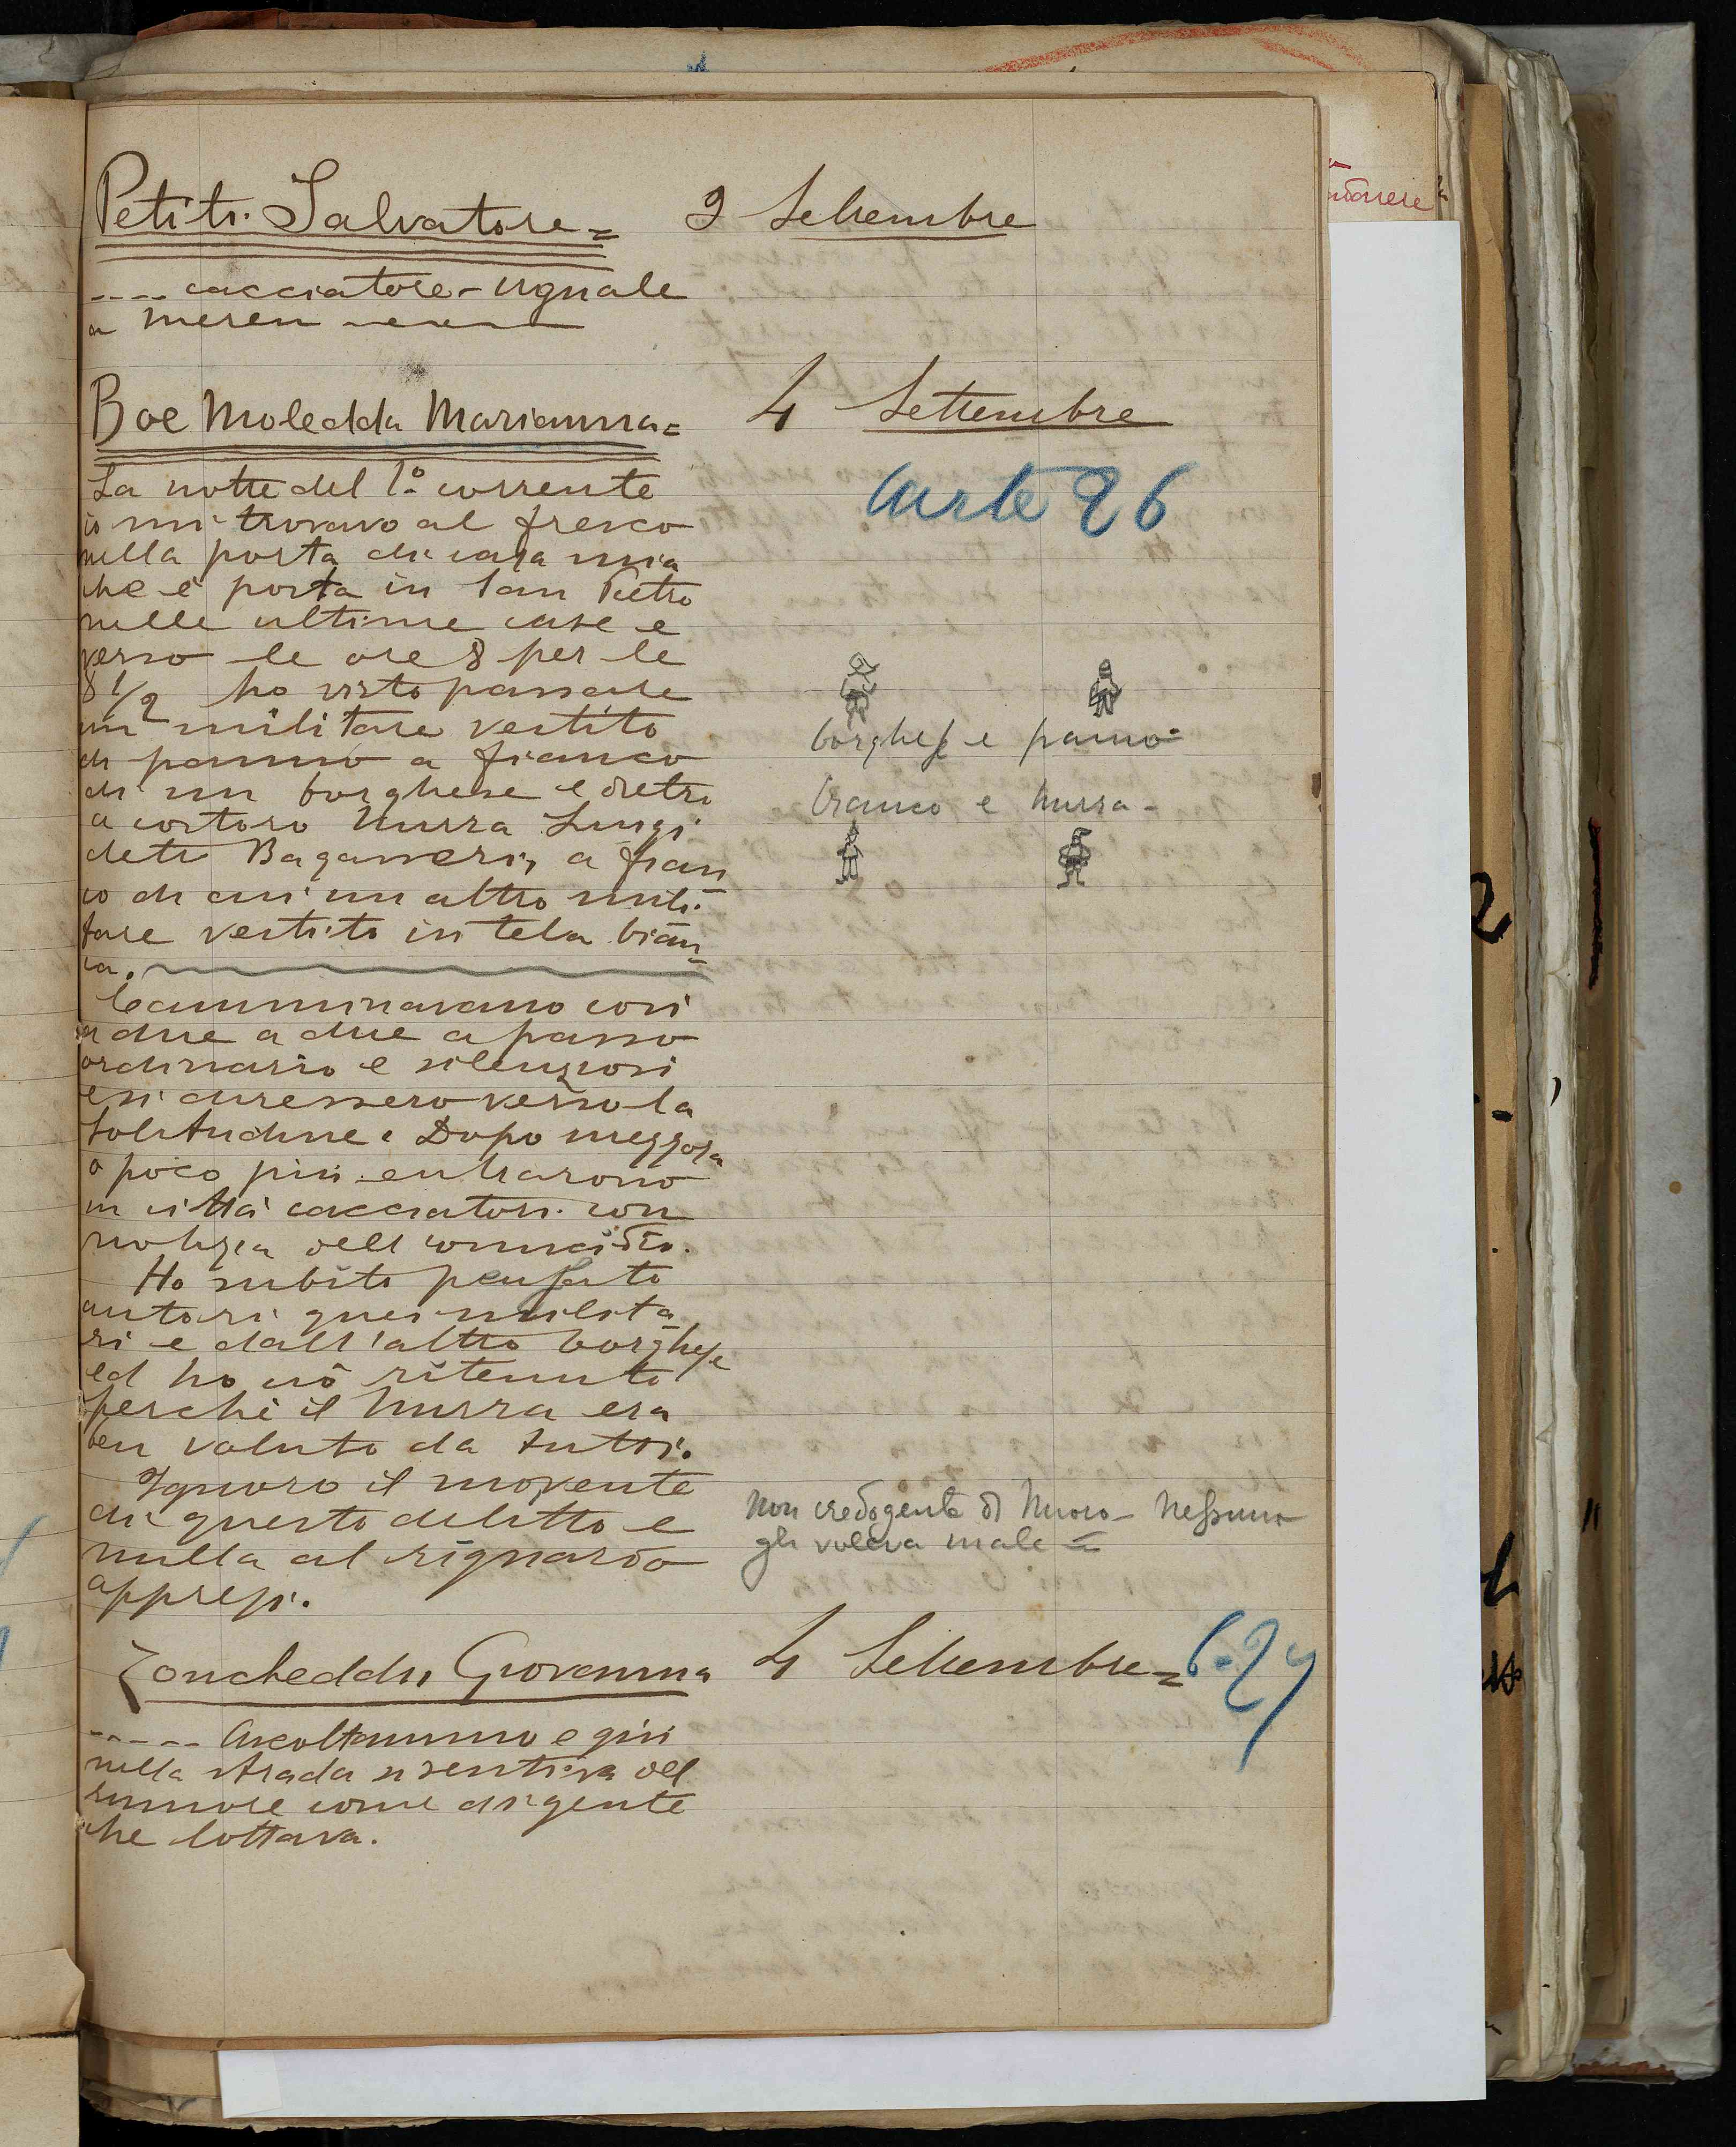 Petiti Salvatore = 9 Settembre
---- cacciatore - Uguale
a mereu
Boe Moledda Marianna = 4 Settembre
Carte 26
La notte del 1° corrente
io mi trovavo al fresco
nella porta di casa mia
che è posta in San Pietro
nelle ultime case e
verso le ore 8 per le
8 1/2 ho visto passare
un militare vestito
di panno a fianco
di un borghese e dietro
a costoro Nurra Luigi
detto Bagasseri, a fian
co di cui un altro mili-
tare vestito in tela bian=
ca.
borghese e panno=
bianco e Nurra -
Camminavano così
a due a due a passo
ordinario e silenziosi
e si diressero verso la
Solitudine. Dopo mezzora
o poco più entrarono
in città cacciatori con
notizia dell'omicidio.
Ho subito pensato
autori quei milita
ri e dall'altro borghese
ed ho ciò ritenuto
perchè il Nurra era
ben voluto da tutti.
Ignoro il movente
di questo delitto e
nulla al riguardo
appresi.
Non credo gente di Nuoro - Nessuno
gli voleva male =
Zoncheddu Giovanna 4 Settembre = 6-27
----- Ascoltammo e giù
nella strada si sentiva del
rumore come di gente
che lottava.